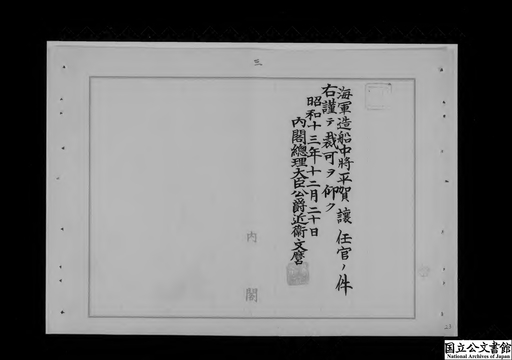 三
海軍造船中將平賀讓任官ノ件
右謹テ裁可ヲ仰ク
昭和十三年十二月二十日
內閣總理大臣公爵近衞文麿
內閣
23
国立公文書館
National Archives of Japan